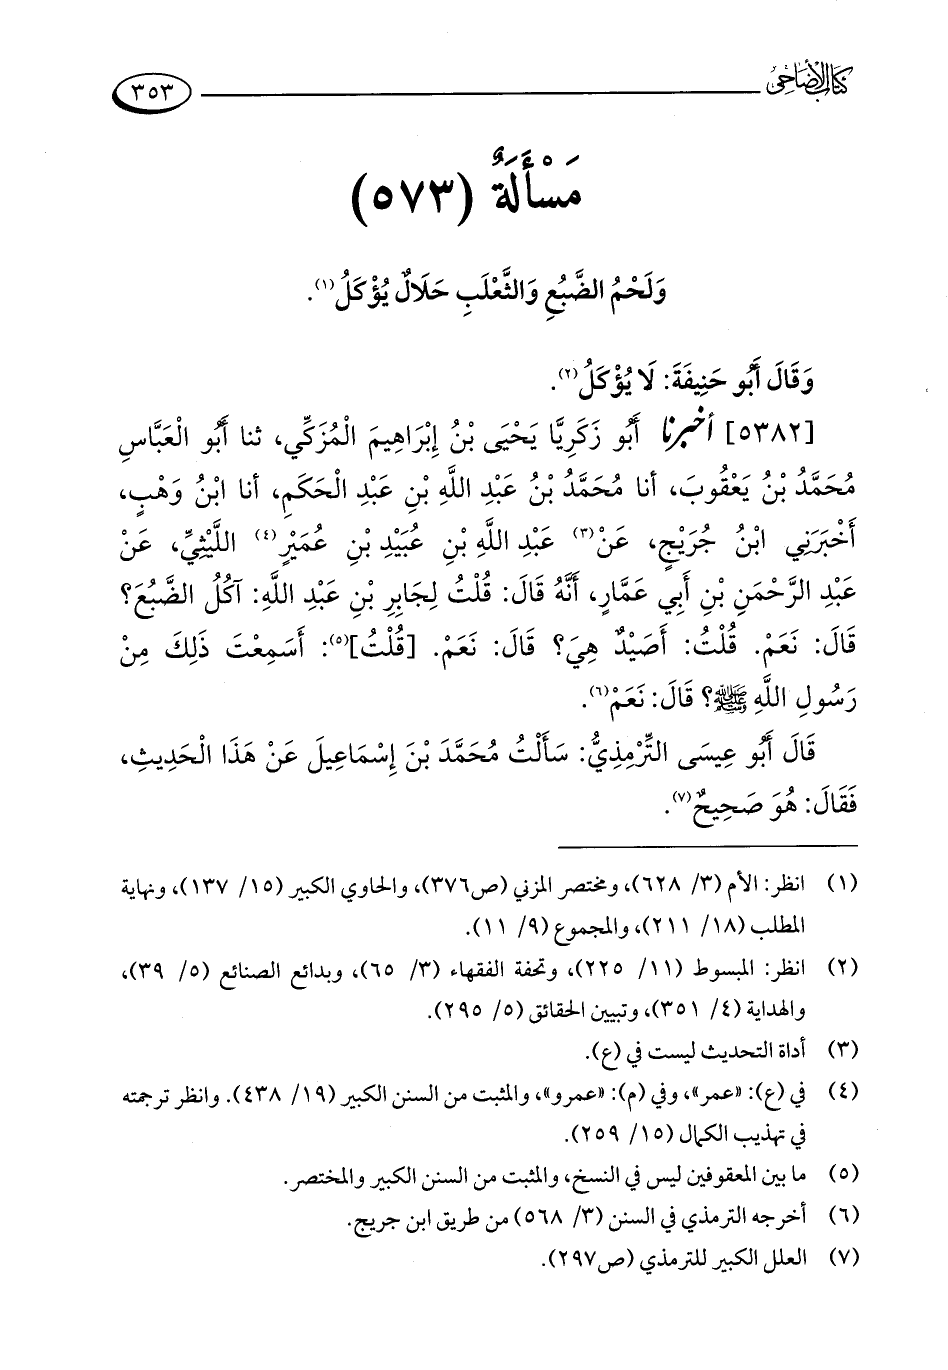 كتاب الأضاحي
٣٥٣
مَسْأَلَةٌ (٥٧٣)
وَلَحْمُ الضَّبُعِ وَالثَّعْلَبِ حَلَالٌ يُؤْكَلُ(١).
وَقَالَ أَبُو حَنِيفَةَ: لَا يُؤْكَلُ(٢).
[٥٣٨٢] أخبرنا أَبُو زَكَرِيَّا يَحْيَى بْنُ إِبْرَاهِيمَ الْمُزَكِّي، ثنا أَبُو الْعَبَّاسِ
مُحَمَّدُ بْنُ يَعْقُوبَ، أنا مُحَمَّدُ بْنُ عَبْدِ اللَّهِ بْنِ عَبْدِ الْحَكَمِ، أنا ابْنُ وَهْبٍ،
أَخْبَرَنِي ابْنُ جُرَيْجٍ، عَنْ(٣) عَبْدِ اللَّهِ بْنِ عُبَيْدِ بْنِ عُمَيْرٍ(٤) اللَّيْثِيِّ، عَنْ
عَبْدِ الرَّحْمَنِ بْنِ أَبِي عَمَّارٍ، أَنَّهُ قَالَ: قُلْتُ لِجَابِرِ بْنِ عَبْدِ اللَّهِ: آكُلُ الضَّبُعَ؟
قَالَ: نَعَمْ. قُلْتُ: أَصَيْدٌ هِيَ؟ قَالَ: نَعَمْ. [قُلْتُ](٥): أَسَمِعْتَ ذَلِكَ مِنْ
رَسُولِ اللَّهِ ﷺ؟ قَالَ: نَعَمْ(٦).
قَالَ أَبُو عِيسَى التِّرْمِذِيُّ: سَأَلْتُ مُحَمَّدَ بْنَ إِسْمَاعِيلَ عَنْ هَذَا الْحَدِيثِ،
فَقَالَ: هُوَ صَحِيحٌ(٧).
(١) انظر: الأم (٣/ ٦٢٨)، ومختصر المزني (ص٣٧٦)، والحاوي الكبير (١٥/ ١٣٧)، ونهاية
المطلب (١٨/ ٢١١)، والمجموع (٩/ ١١).
(٢) انظر: المبسوط (١١/ ٢٢٥)، وتحفة الفقهاء (٣/ ٦٥)، وبدائع الصنائع (٥/ ٣٩)،
والهداية (٤/ ٣٥١)، وتبيين الحقائق (٥/ ٢٩٥).
(٣) أداة التحديث ليست في (ع).
(٤) في (ع): «عمر»، وفي (م): «عمرو»، والمثبت من السنن الكبير (١٩/ ٤٣٨). وانظر ترجمته
في تهذيب الكمال (١٥/ ٢٥٩).
(٥) ما بين المعقوفين ليس في النسخ، والمثبت من السنن الكبير والمختصر.
(٦) أخرجه الترمذي في السنن (٣/ ٥٦٨) من طريق ابن جريج.
(٧) العلل الكبير للترمذي (ص٢٩٧).